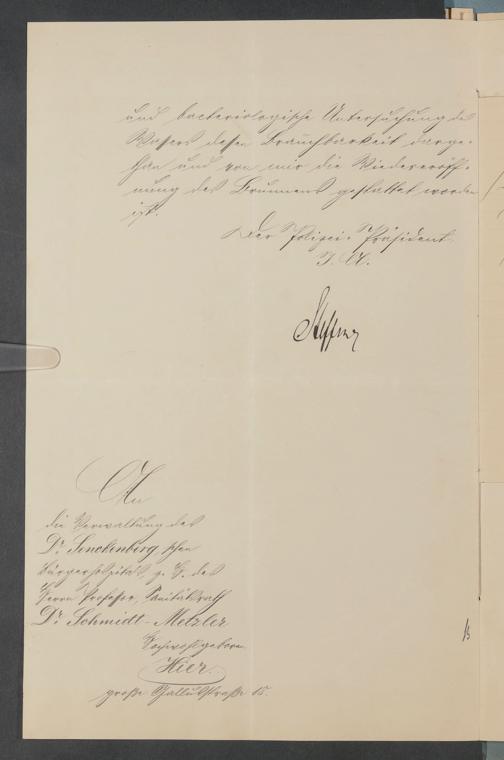 und bacteriologische Untersuchung des
Wassers dessen Brauchbarkeit darge-
than und von mir die Wiedereröff-
nung des Brunnens gestattet worden
ist.
Der Polizei-Präsident
I. A.
An
die Verwaltung des
Dr. Senckenberg'schen
Bürgerhospitals, z. H. des
Herrn Professor, Sanitätsrath
Dr. Schmidt-Metzler
Hochwohlgeboren
Hier.
große Gallusstraße 15.